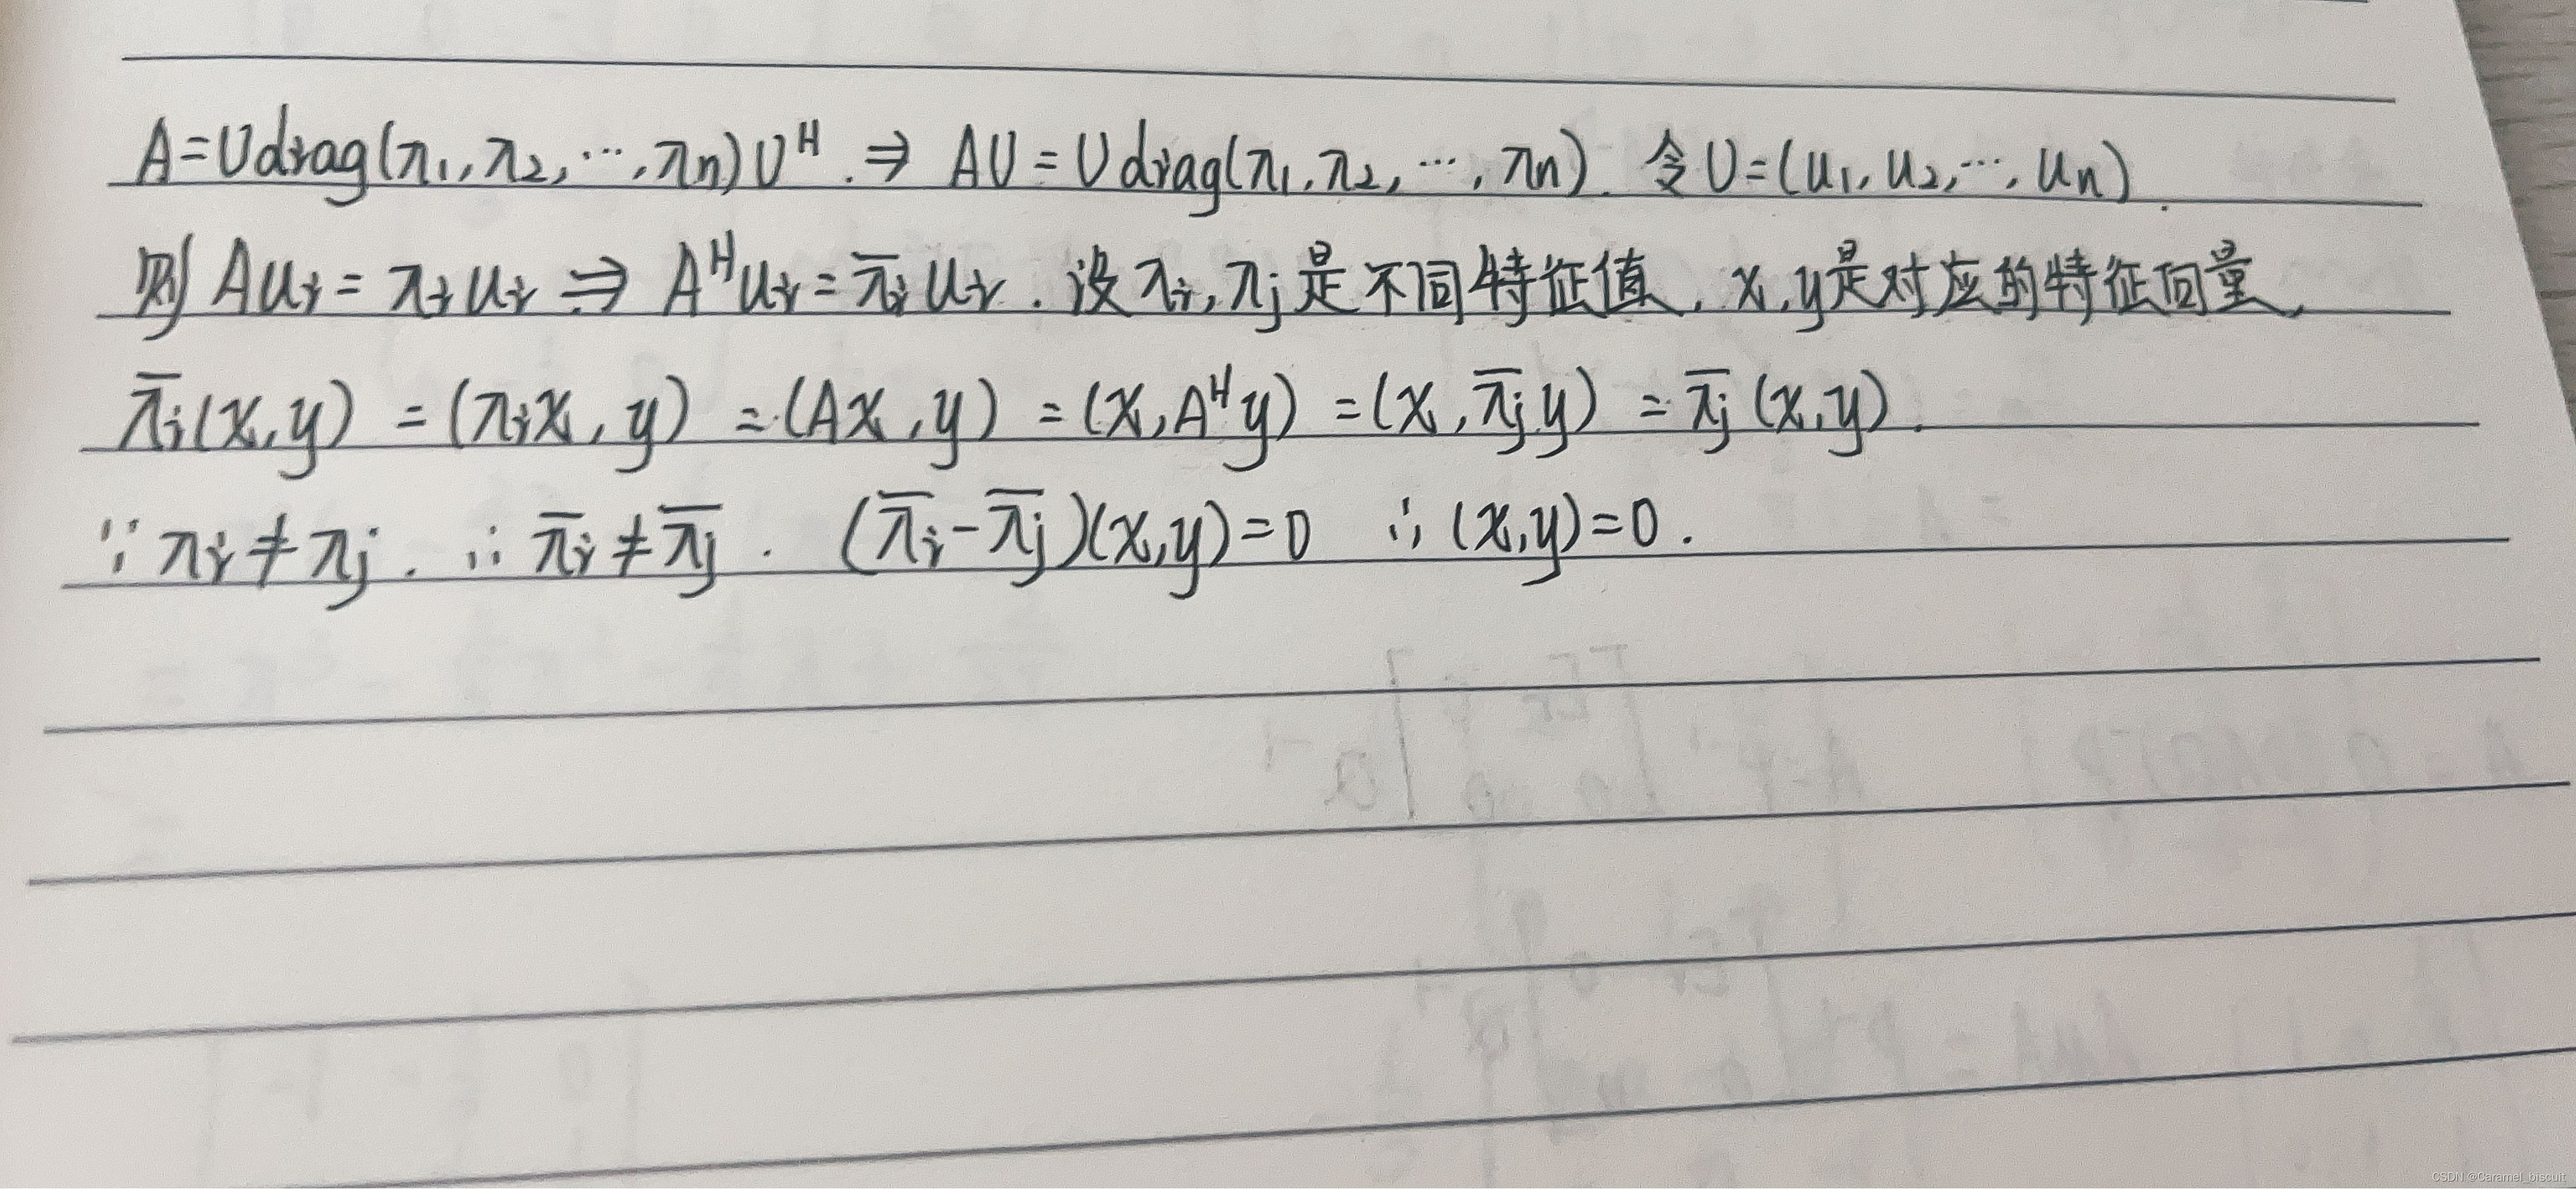 A=Udiag(λ₁,λ₂,⋯,λn)Uᴴ.⇒ AU=Udiag(λ₁,λ₂,⋯,λn). 令U=(u₁,u₂,⋯,un).
则Auᵢ=λᵢuᵢ⇒Aᴴuᵢ=λ̅ᵢuᵢ.设λᵢ,λⱼ是不同特征值,x,y是对应的特征向量,
λ̅ᵢ(x,y)=(λᵢx,y)=(Ax,y)=(x,Aᴴy)=(x,λ̅ⱼy)=λ̅ⱼ(x,y).
∵λᵢ≠λⱼ.∴λ̅ᵢ≠λ̅ⱼ. (λ̅ᵢ-λ̅ⱼ)(x,y)=0 ∴(x,y)=0.
CSDN @Caramel_biscuit